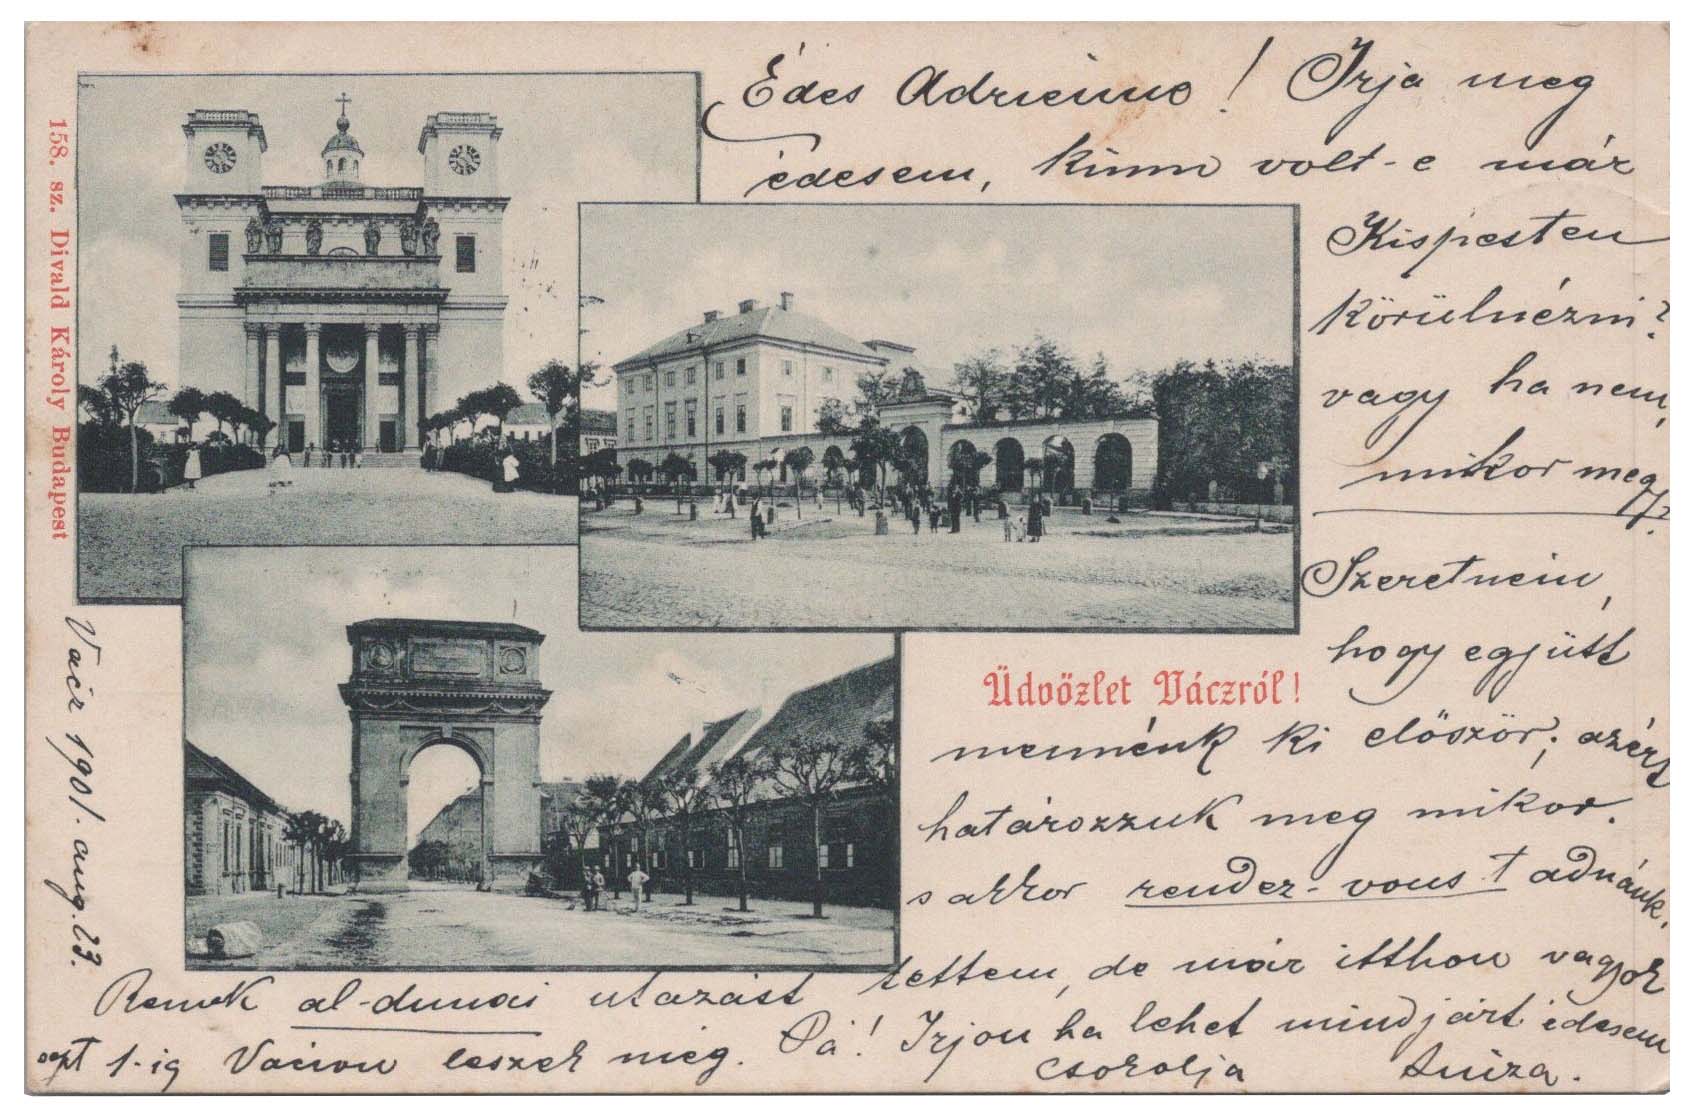 158. sz. Divald Károly Budapest
Üdvözlet Váczról!
Vácz 1901. aug. 23.
Édes Adrienne! Irja meg
édesem, kinn volt-e már
Kispesten
körülnézni?
vagy ha nem,
mikor meg
Szeretném,
hogy együtt
mennénk ki először; azért
határozzuk meg mikor.
s akkor rendez-voust adnánk.
Remek al-dunai utazást tettem, de már itthon vagyok
sept 1-ig Vácion leszek még. Pá! Irjon ha lehet mindjárt édesem
csokolja